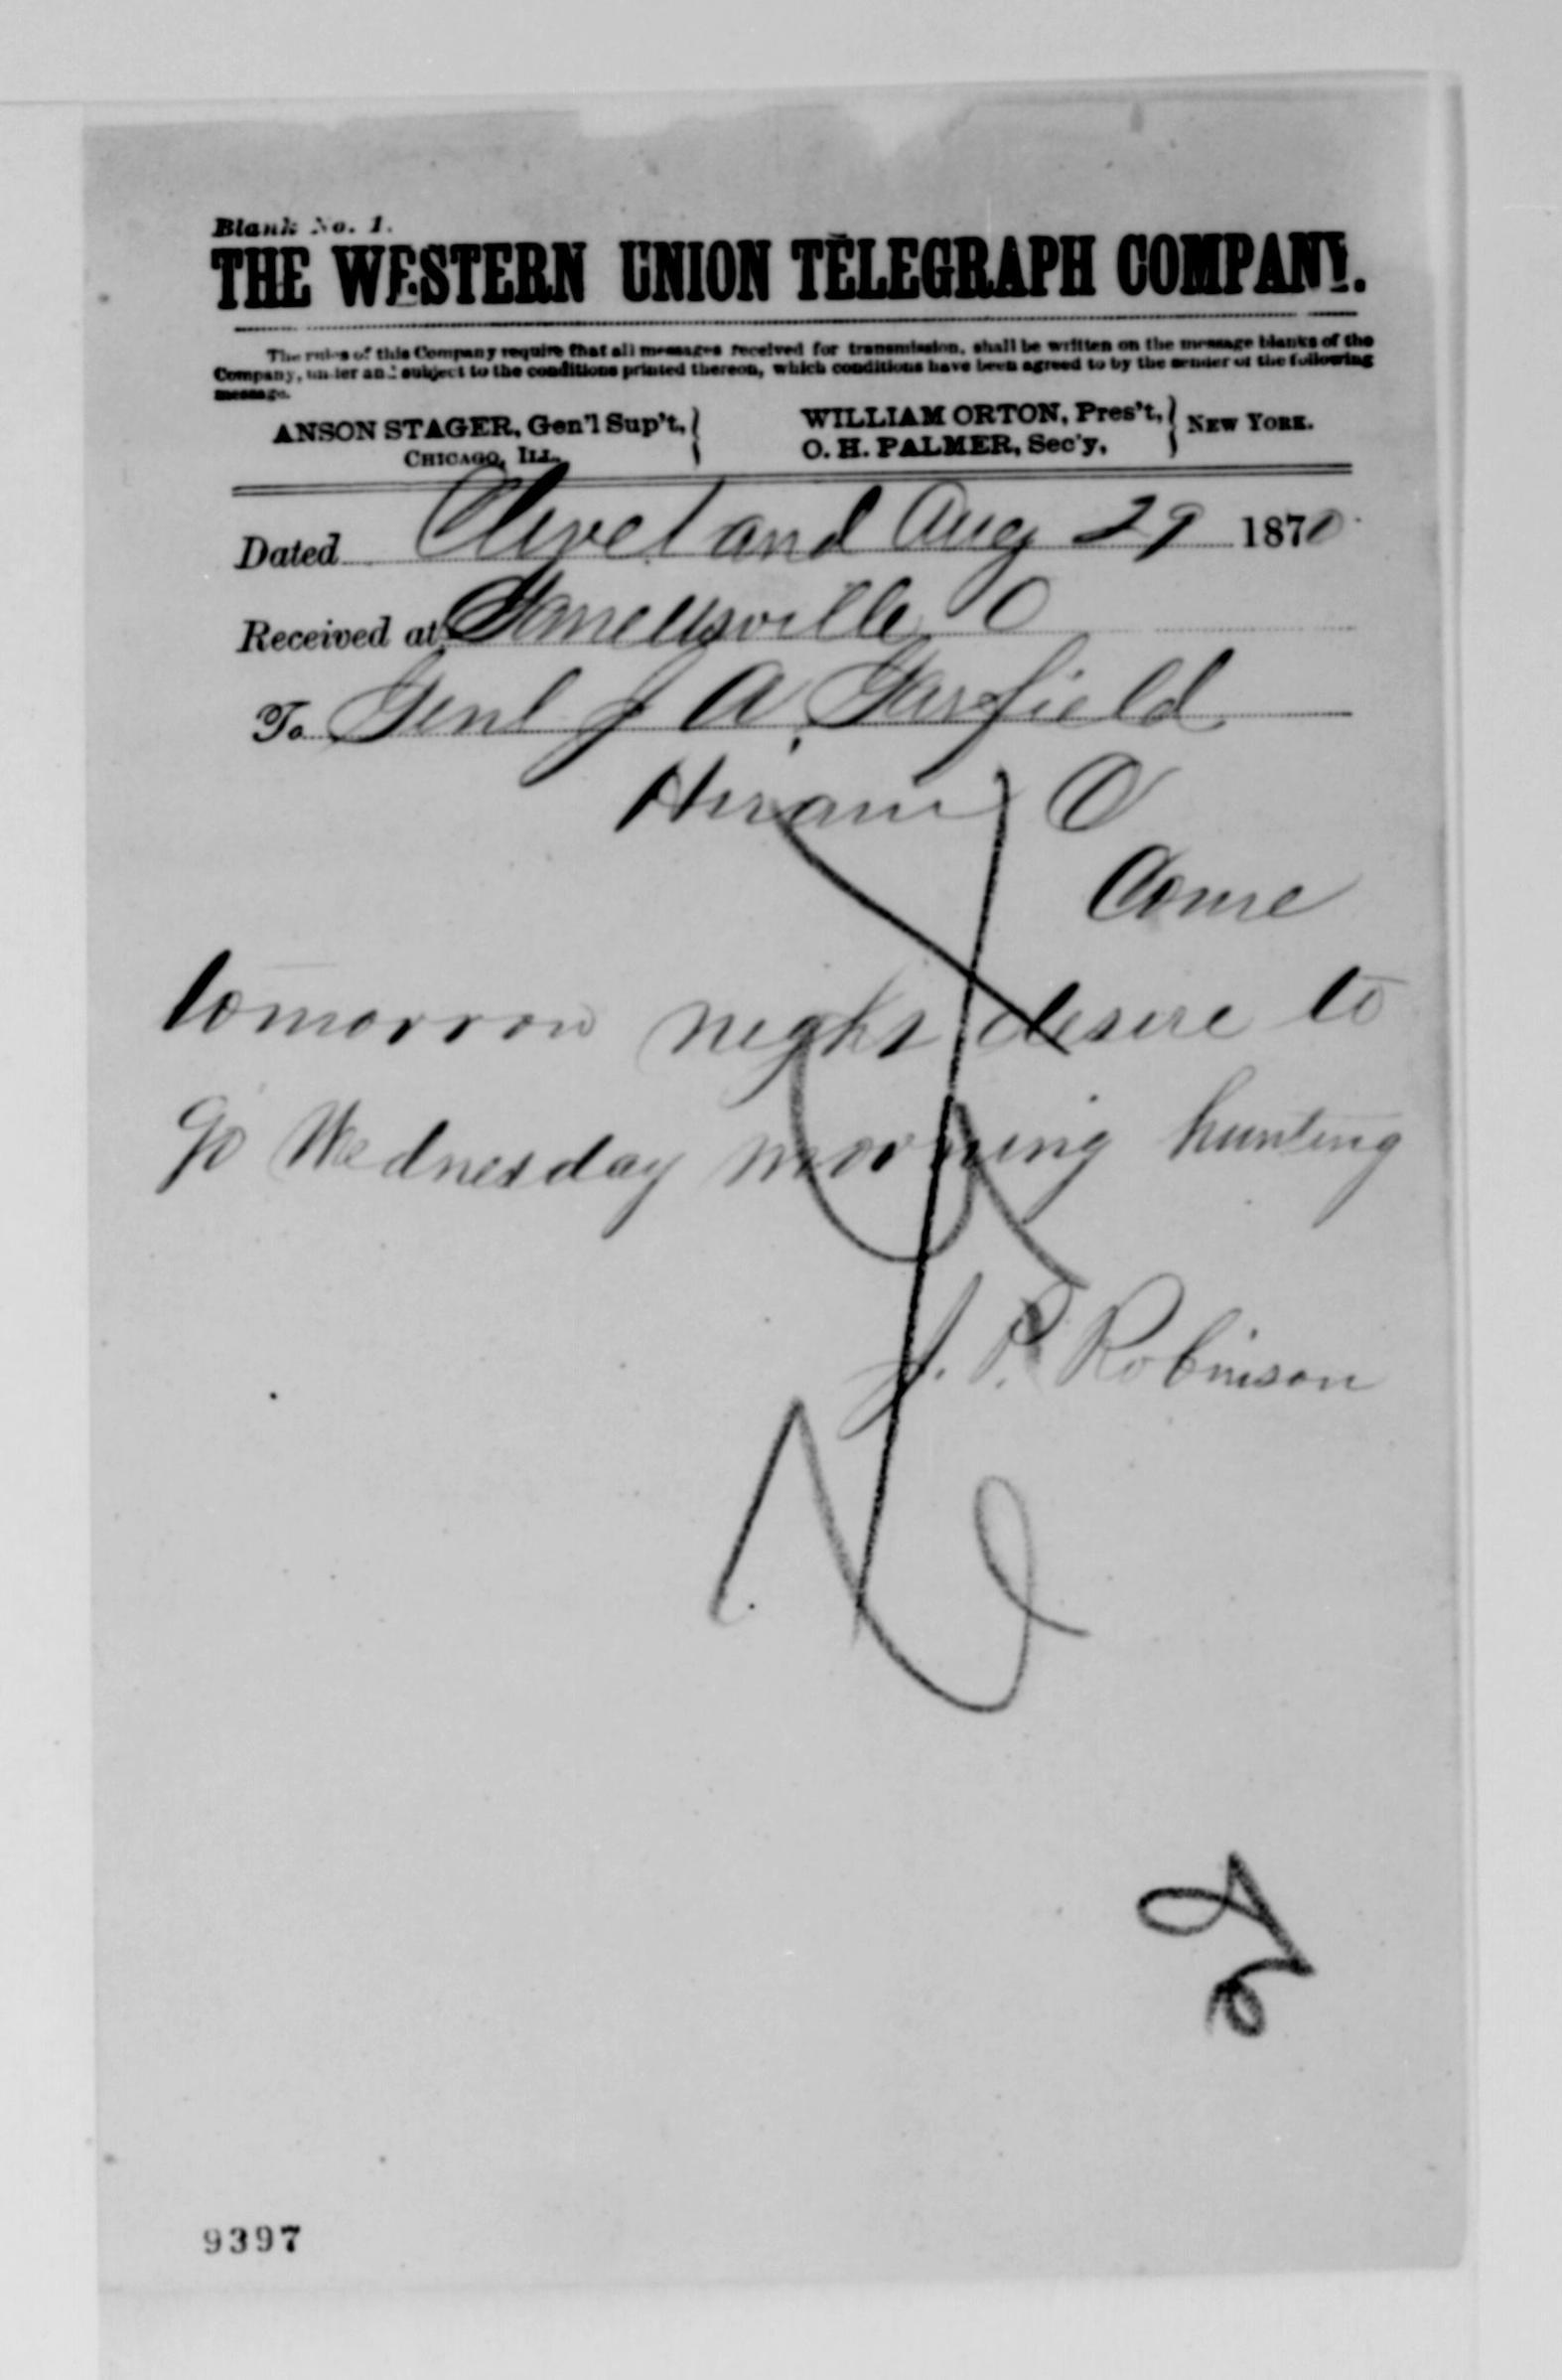 Blank No. 1.
THE WESTERN UNION TELEGRAPH COMPANY.
The rules of this Company require that all messages received for transmission, shall be written on the message blanks of the
Company, under and subject to the conditions printed thereon, which conditions have been agreed to by the sender of the following
message.
ANSON STAGER, Gen'l Sup't, CHICAGO, ILL.
WILLIAM ORTON, Pres't, O. H. PALMER, Sec'y, NEW YORK.
Dated Cleveland Aug 29 1870
Received at Garrettsville O
To Genl J A, Garfield
Hiram O
Come
tomorrow night desire to
go Wednesday morning hunting
J. P. Robinson
9397